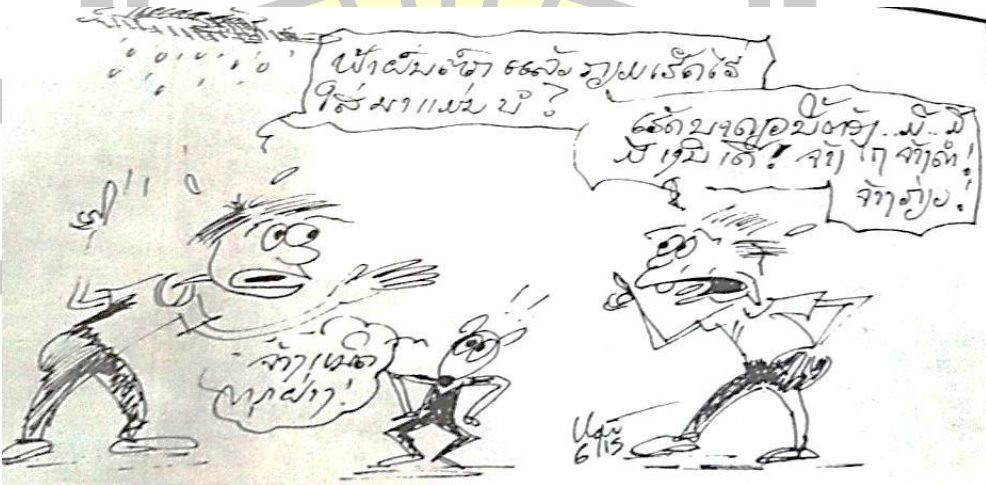 ຟ້າຝົນຕົກ ແລ້ວ ກຽມເຮັດໄຮ່
ໃສ່ ນາແມ່ນ ບໍ?
ເຮັດ ບາດ ບໍ່ຕ້ອງ.. ມີ.. ມີ
ມີ ເງິນ ເດ້! ຈ້າງ ໄຖ ຈ້າງດຳ!
ຈ້າງກ່ຽວ!
ຈ້າງ ເໝົດ
ທຸກຢ່າງ!
6/15